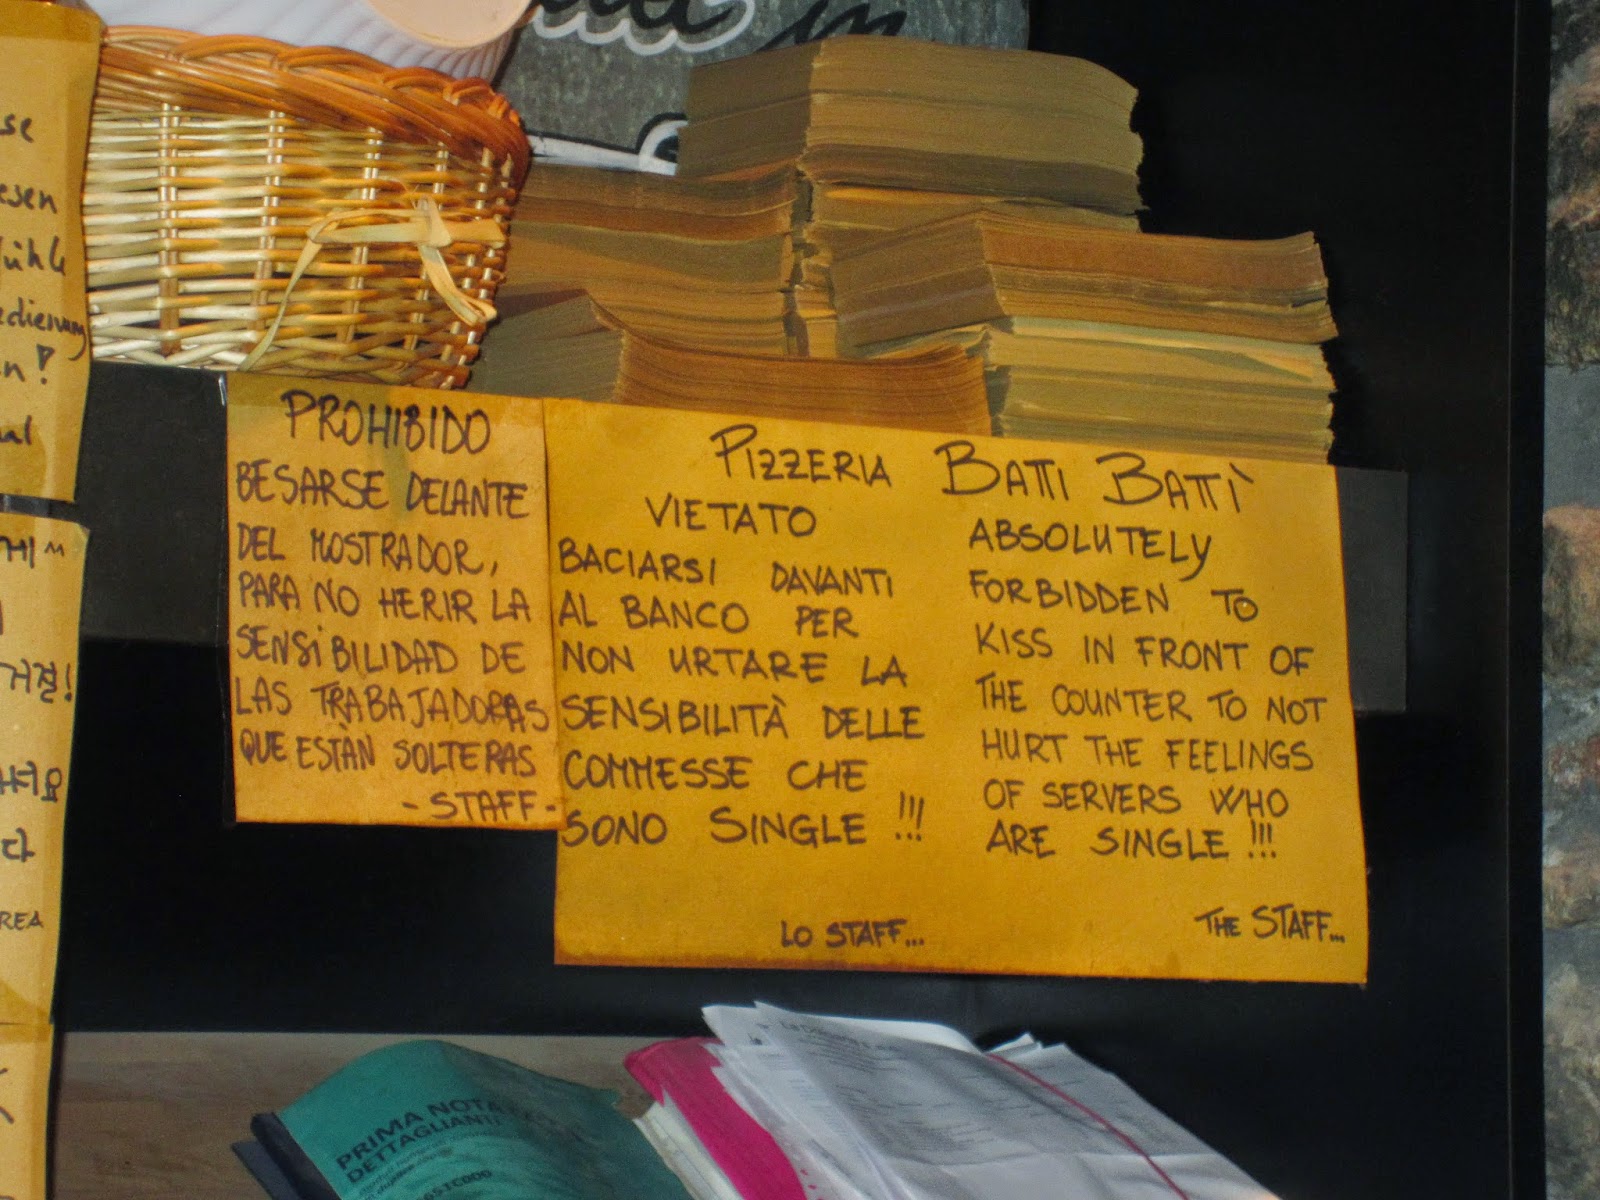 se
esen
ühle
edienung
n!
al
거절!
다
REA
PROHIBIDO
BESARSE DELANTE
DEL MOSTRADOR,
PARA NO HERIR LA
SENSIBILIDAD DE
LAS TRABAJADORAS
QUE ESTÀN SOLTERAS
- STAFF -
PIZZERIA BATTI BATTÌ
VIETATO
BACIARSI DAVANTI
AL BANCO PER
NON URTARE LA
SENSIBILITÀ DELLE
COMMESSE CHE
SONO SINGLE !!!
LO STAFF...
ABSOLUTELY
FORBIDDEN TO
KISS IN FRONT OF
THE COUNTER TO NOT
HURT THE FEELINGS
OF SERVERS WHO
ARE SINGLE !!!
THE STAFF...
PRIMA NOTA
DETTAGLIANTI